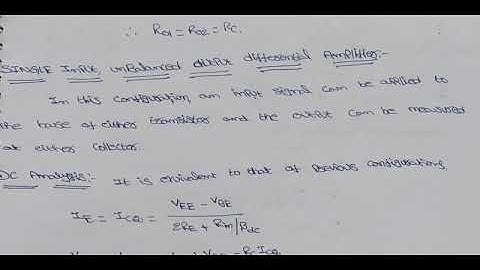 ∴ R01 = R02 = RC.
SINGLE Input, unBalanced output differential Amplifier:-
In this configuration, an input signal can be applied to
the base of either transistor and the output can be measured
at either collector.
DC Analysis:- It is equivalent to that of previous configuration,
IE = ICQ = (VEE - VBE) / (2RE + Rin/βdc)
- RC ICQ